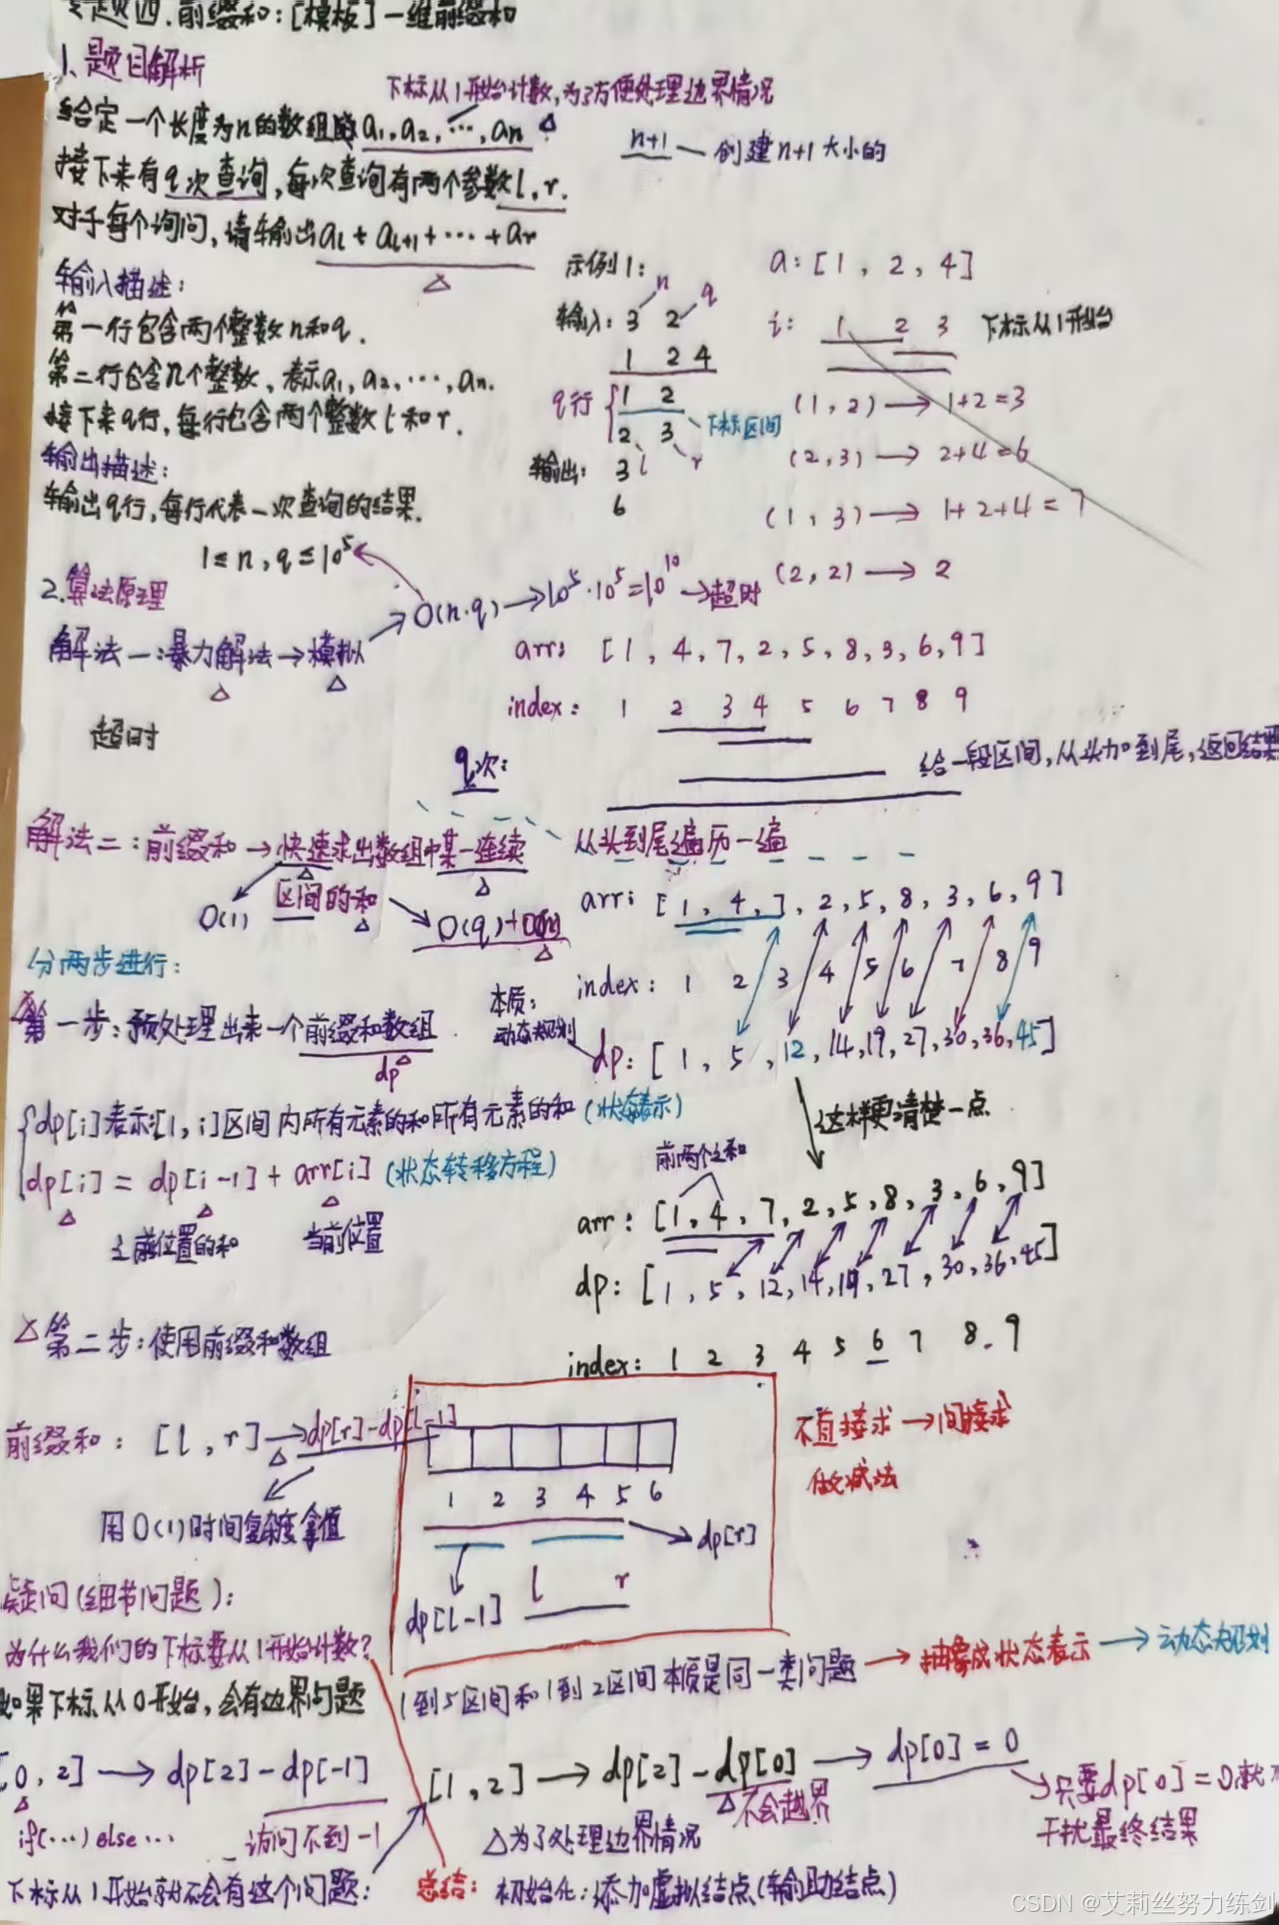 专题四.前缀和:[模板]一维前缀和
1、题目解析
下标从1开始计数,为了方便处理边界情况
给定一个长度为n的数组 a₁,a₂,…,aₙ
n+1 — 创建n+1大小的
接下来有q次查询,每次查询有两个参数l,r.
对于每个询问,请输出aₗ+aₗ₊₁+…+aᵣ
输入描述:
第一行包含两个整数n和q.
第二行包含n个整数,表示a₁,a₂,…,aₙ.
接下来q行,每行包含两个整数l和r.
输出描述:
输出q行,每行代表一次查询的结果.
1≤n,q≤10⁵
示例1:
n q
输入:3 2
1 2 4
q行 { 1 2
2 3 下标区间
l r
输出:3
6
a:[1, 2, 4]
i: 1 2 3 下标从1开始
(1,2)→1+2=3
(2,3)→2+4=6
(1,3)→1+2+4=7
(2,2)→2
2.算法原理
解法一:暴力解法→模拟→O(n·q)→10⁵·10⁵=10¹⁰→超时
超时
arr: [1,4,7,2,5,8,3,6,9]
index: 1 2 3 4 5 6 7 8 9
q次:
给一段区间,从头加到尾,返回结果
解法二:前缀和→快速求出数组中某一连续
区间的和
O(1)
O(q)+O(n)
从头到尾遍历一遍
arr: [1,4,7,2,5,8,3,6,9]
index: 1 2 3 4 5 6 7 8 9
本质:
动态规划
dp: [1,5,12,14,19,27,30,36,45]
这样更清楚一点
分两步进行:
第一步:预处理出来一个前缀和数组
dp
dp[i]表示:[1,i]区间内所有元素的和所有元素的和(状态表示)
dp[i]=dp[i-1]+arr[i](状态转移方程)
之前位置的和 当前位置
前两个之和
arr: [1,4,7,2,5,8,3,6,9]
dp: [1,5,12,14,19,27,30,36,45]
index: 1 2 3 4 5 6 7 8 9
第二步:使用前缀和数组
前缀和:[l,r]→dp[r]-dp[l-1]
用O(1)时间复杂度拿值
1 2 3 4 5 6
dp[r]
l r
dp[l-1]
不直接求→间接求
做减法
疑问(细节问题):
为什么我们的下标要从1开始计数?
如果下标从0开始,会有边界问题
1到5区间和1到2区间本质是同一类问题→抽象成状态表示→动态规划
[0,2]→dp[2]-dp[-1]
if(…)else… 访问不到-1
下标从1开始就不会有这个问题:
[1,2]→dp[2]-dp[0]→dp[0]=0
不会越界
只要dp[0]=0就不
干扰最终结果
为了处理边界情况
总结:初始化:添加虚拟结点(辅助结点)
CSDN @艾莉丝努力练剑